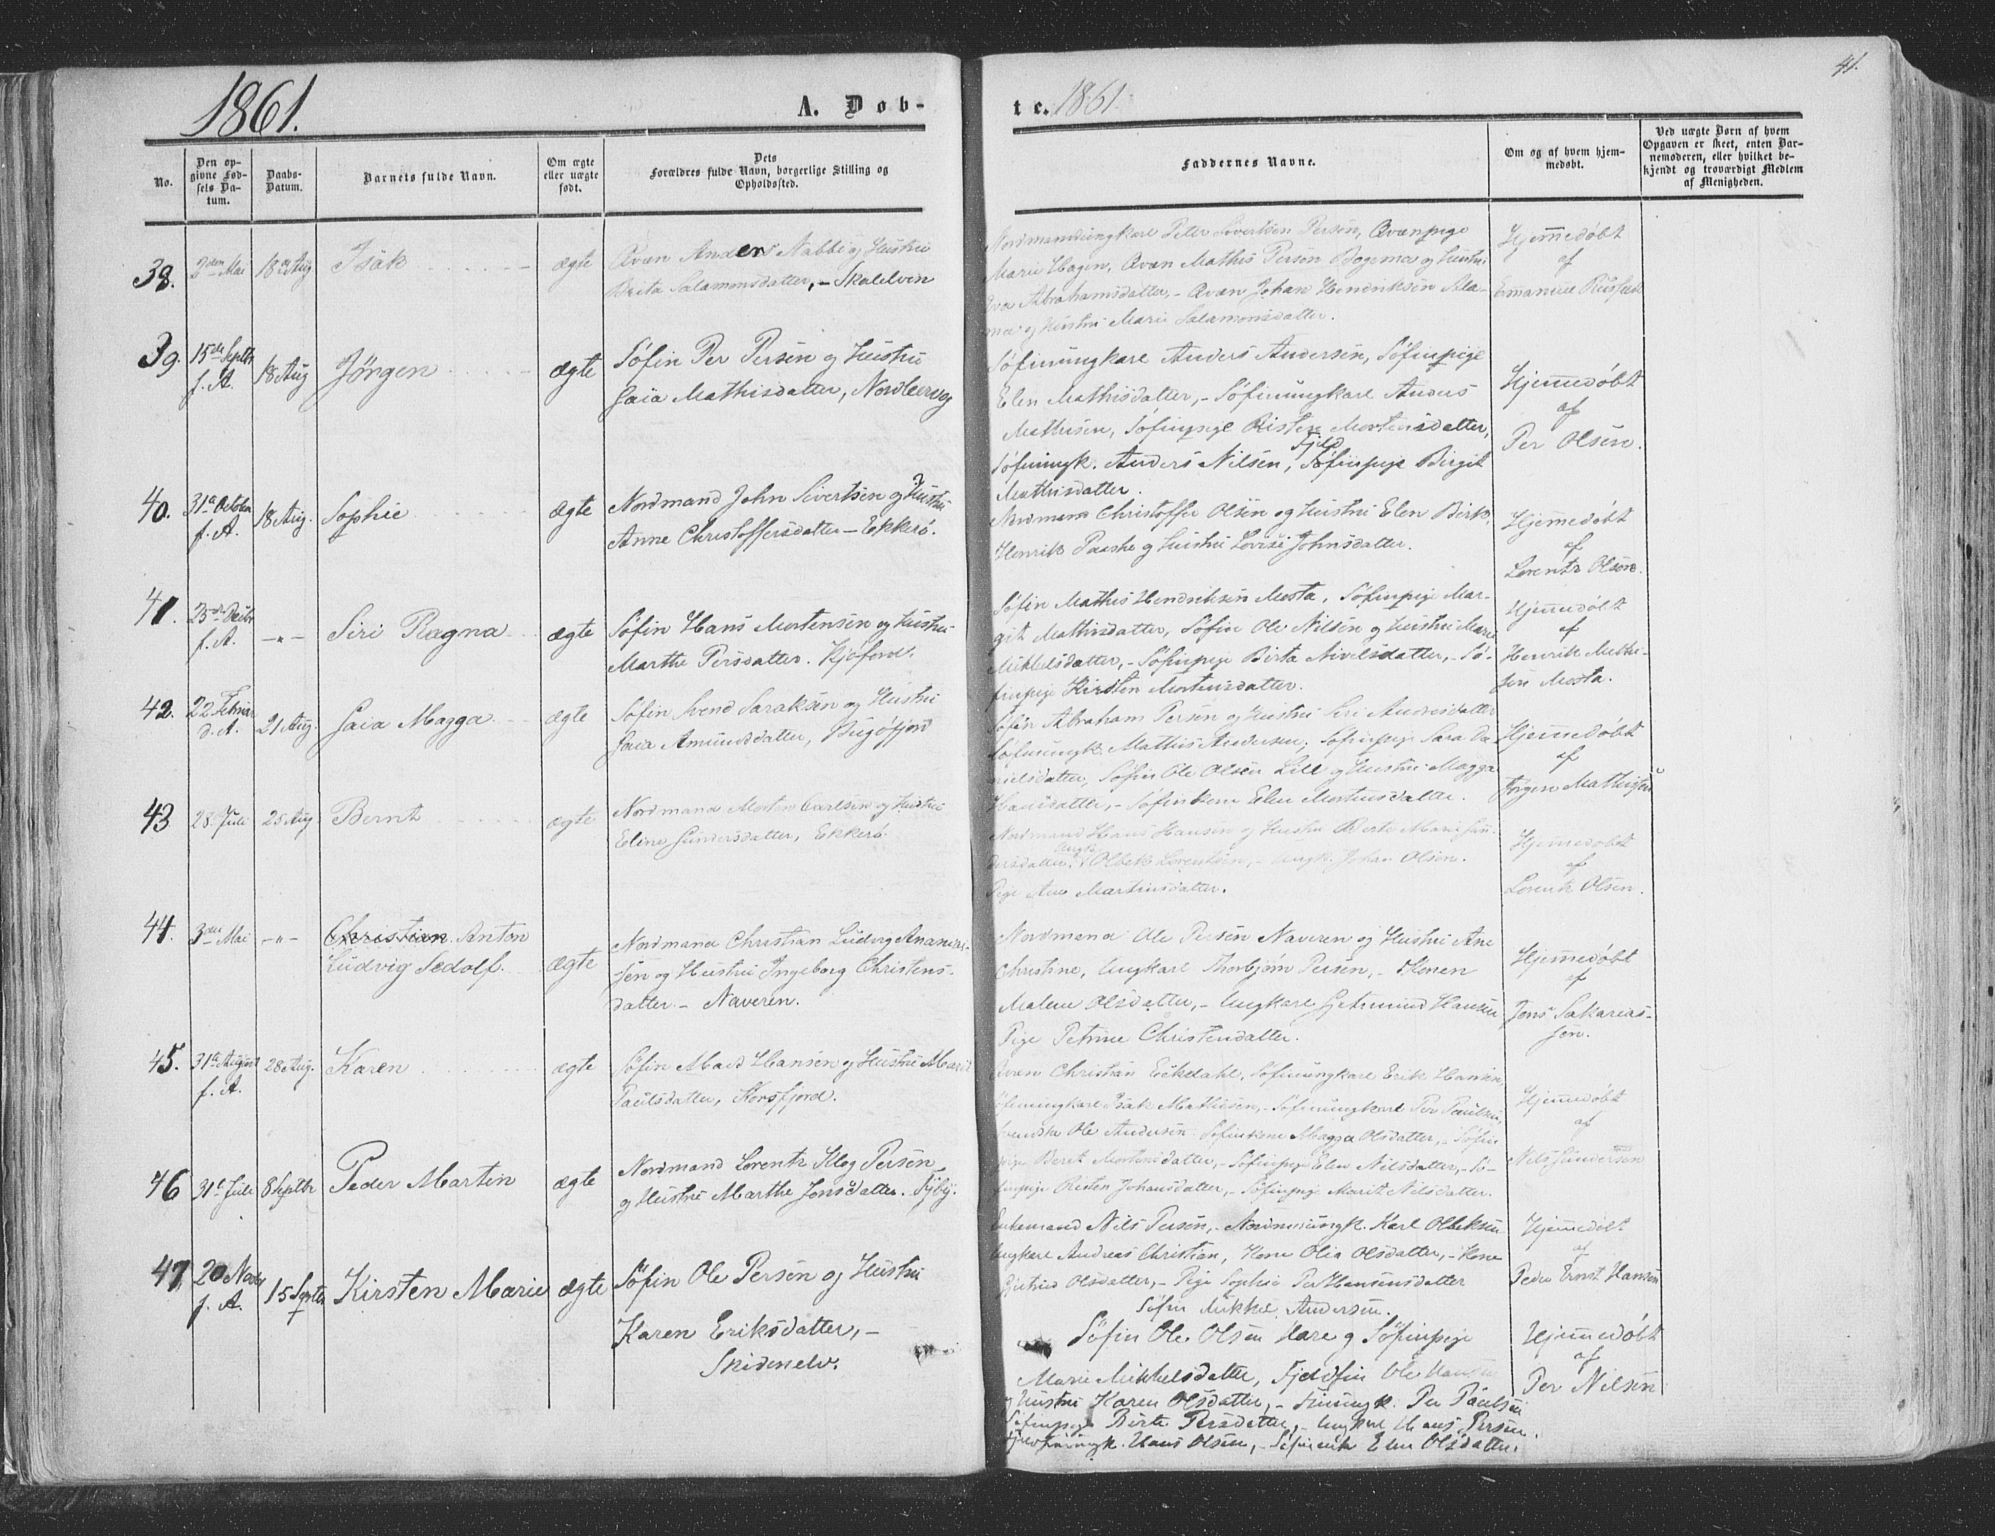 1861.
A. Døb-
te. 1861.
41.
No.
Den op-
givne Fød-
sels Da-
tum.
Daabs-
Datum.
Barnets fulde Navn.
Om ægte
eller uægte
født.
Dets
Forældres fulde Navn, borgerlige Stilling og
Opholdssted.
Faddernes Navne.
Om og af hvem hjem-
medøbt.
Ved uægte Børn af hvem
Opgaven er skeet, enten Bar-
nemoderen, eller hvilket be-
kjendt og troværdigt Medlem
af Menigheden.
38. 2den Mai 18de Aug Isak ægte
Qvæn Anders Nabbe og Hustru
Brita Salamonsdatter, - Skalelven
Nordmandungkarl Peder Sivertsen Persen, Qvænpige
Marie Hagen, Qvæn Mathis Persen Bogema og Hustru
Eva Abrahamsdatter, - Qvæn Johan Hendriksen
og Hustru Marie Salamonsdatter.
Hjemmedøbt
af
Emanuel
39. 15de Septbr f. A. 18 Aug Jørgen ægte
Søfin Per Persen og Hustru
Gaia Mathisdatter, Nordleervog
Søfinungkarl Anders Andersen, Søfinpige
Elen Mathisdatter, - Søfinungkarl Anders
Mathisen, Søfinpige Risten Mortensdatter,
Søfinungk. Anders Nilsen, Fjeldfinpige Birgit
Mathisdatter.
Hjemmedøbt
af
Per Olsen.
40. 31te October f. A. 18 Aug. Sophie ægte
Nordmand John Sivertsen og Hustru
Anne Christoffersdatter - Ekkerø.
Nordmand Christoffer Olsen og Hustru Elen Birk,
Henrik Paaske og Hustru Lovise Johnsdatter.
Hjemmedøbt
af
Lorentz Olsen.
41. 23de Decbr f. A. -"- Siri Ragna ægte
Søfin Hans Mortensen og Hustru
Marthe Persdatter. Kjøfjord.
Søfin Mathis Hendriksen Mosta, Søfinpige Mar-
git Mathisdatter, Søfin Ole Nilsen og Hustru Mare
Mikkelsdatter, - Søfinpige Birta Nivelsdatter, - Sø-
finpige Kirsten Mortensdatter.
Hjemmedøbt
af
Henrik Mathi-
sen Mosta.
42. 22 Februar d. A. 21 Aug. Gaia Magga ægte
Søfin Svend Saraksen og Hustru
Gaia Amundsdatter, Bugøfjord
Søfin Abraham Persen og Hustru Siri Andersdatter
Søfinungk. Mathis Andersen, Søfinpige Sara Da-
nielsdatter, Søfin Ole Olsen Lill og Hustru Magga
Hansdatter, - Søfinkone Elen Mortensdatter.
Hjemmedøbt
af
Jørgen Mathisen
43 28 Juli 25 Aug Bernt ægte
Nordmand Morten Carlsen og Hustru
Eline Gundersdatter, Ekkerø.
Nordmand Hans Hansen og Hustru Berte Marie Gun-
dersdatter, Ungk. Olbek Lorentsen, - Ungk. Johan Olsen.
Pige Ane Martinsdatter.
Hjemmedøbt
af
Lorentz Olsen.
44. 3die Mai -"- Christian Anton
Ludvig Sedolf. ægte
Nordmand Christian Ludvig Ananias-
sen og Hustru Ingeborg Christens-
datter - Naveren.
Nordmand Ole Persen Naveren og Hustru Ane
Christine, Ungkarl Thorbjørn Persen, - Konen
Malene Olsdatter, - Ungkarl Hansen
Pige Petrine Christensdatter.
Hjemmedøbt
af
Jens Sakarias-
sen.
45. 31te August f. A. 28 Aug. Karen ægte
Søfin Mads Hansen og Hustru Marit
Paulsdatter, Korsfjord.
Qvæn Christian Eekdahl, Søfinungkarl Erik Hansen,
Søfinungkarl Isak Mathisen, - Søfinungkarl Per Paulsen,
Svenske Ole Andersen Søfinkone Magga Olsdatter, - Søfin
pige Beret Mortensdatter, - Søfinpige Elen Nilsdatter, - Sø-
finpige Risten Johansdatter, - Søfinpige Marit Nilsdatter.
Hjemmedøbt
af
Nils Gundersen
46 31te Juli 8 Septbr Peder Martin ægte
Nordmand Lorentz Kleg Persen
og Hustru Marthe Jonsdatter. Kyby.
Enkemand Nils Persen, - Nordmungk. Karl Olbeksen
Ungkarl Andreas Christian, Kone Olia Olsdatter, - Kone
Olsdatter, - Pige Sophie Per Hansensdatter
Søfin Mikkel Andersen.
Hjemmedøbt
af
Peder Ernst Hansen
47 20 Novbr f. A. 15 Septbr Kirsten Marie ægte
Søfin Ole Persen og Hustru
Karen Eriksdatter, -
Skidenelv.
Søfin Ole Olsen Hare og Søfinpige
Marie Mikkelsdatter, Fjeldfin Ole Hansen
og Hustru Karen Olsdatter, - Finungk. Per Paulsen
Søfinpige Birte Persdatter, - Ungkarl Hans Persen.
Hans Olsen, - Elen Olsdatter.
Hjemmedøbt
af
Per Nilsen